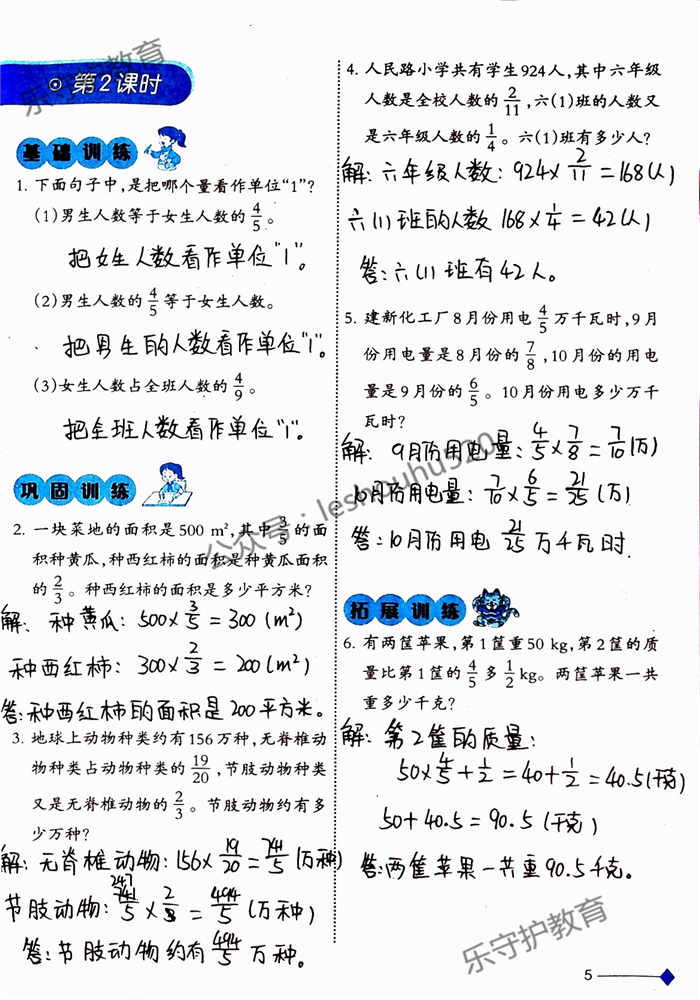 第2课时
基础训练
1. 下面句子中,是把哪个量看作单位“1”?
(1)男生人数等于女生人数的4/5。
把女生人数看作单位"1"。
(2)男生人数的4/5等于女生人数。
把男生的人数看作单位"1"。
(3)女生人数占全班人数的4/9。
把全班人数看作单位"1"。
巩固训练
2. 一块菜地的面积是500 m²,其中3/5的面
积种黄瓜,种西红柿的面积是种黄瓜面积
的2/3。种西红柿的面积是多少平方米?
解: 种黄瓜: 500×3/5=300(m²)
种西红柿: 300×2/3=200(m²)
答:种西红柿的面积是200平方米。
3. 地球上动物种类约有156万种,无脊椎动
物种类占动物种类的19/20,节肢动物种类
又是无脊椎动物的2/3。节肢动物约有多
少万种?
解:无脊椎动物:156×19/20=741/5(万种)
247
节肢动物:741/5×2/3=494/5(万种)
答:节肢动物约有494/5万种。
4. 人民路小学共有学生924人,其中六年级
人数是全校人数的2/11,六(1)班的人数又
是六年级人数的1/4。六(1)班有多少人?
解:六年级人数: 924×2/11=168(人)
六(1)班的人数 168×1/4=42(人)
答:六(1)班有42人。
5. 建新化工厂8月份用电4/5万千瓦时,9月
份用电量是8月份的7/8,10月份的用电
量是9月份的6/5。10月份用电多少万千
瓦时?
解: 9月份用电量: 4/5×7/8=7/10(万)
10月份用电量: 7/10×6/5=21/25(万)
答:10月份用电21/25万千瓦时.
拓展训练
6. 有两筐苹果,第1筐重50 kg,第2筐的质
量比第1筐的4/5多1/2 kg。两筐苹果一共
重多少千克?
解: 第2筐的质量:
50×4/5+1/2=40+1/2=40.5(千克)
50+40.5=90.5(千克)
答:两筐苹果一共重90.5千克。
5
乐守护教育
公众号:leshouhu920
乐守护教育